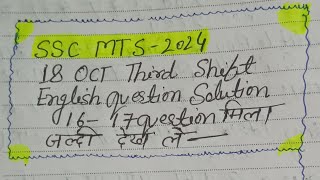 SSC MTS-2024
18 OCT Third Shift
English question Solution
16-17 question मिला
जल्दी देख ले—